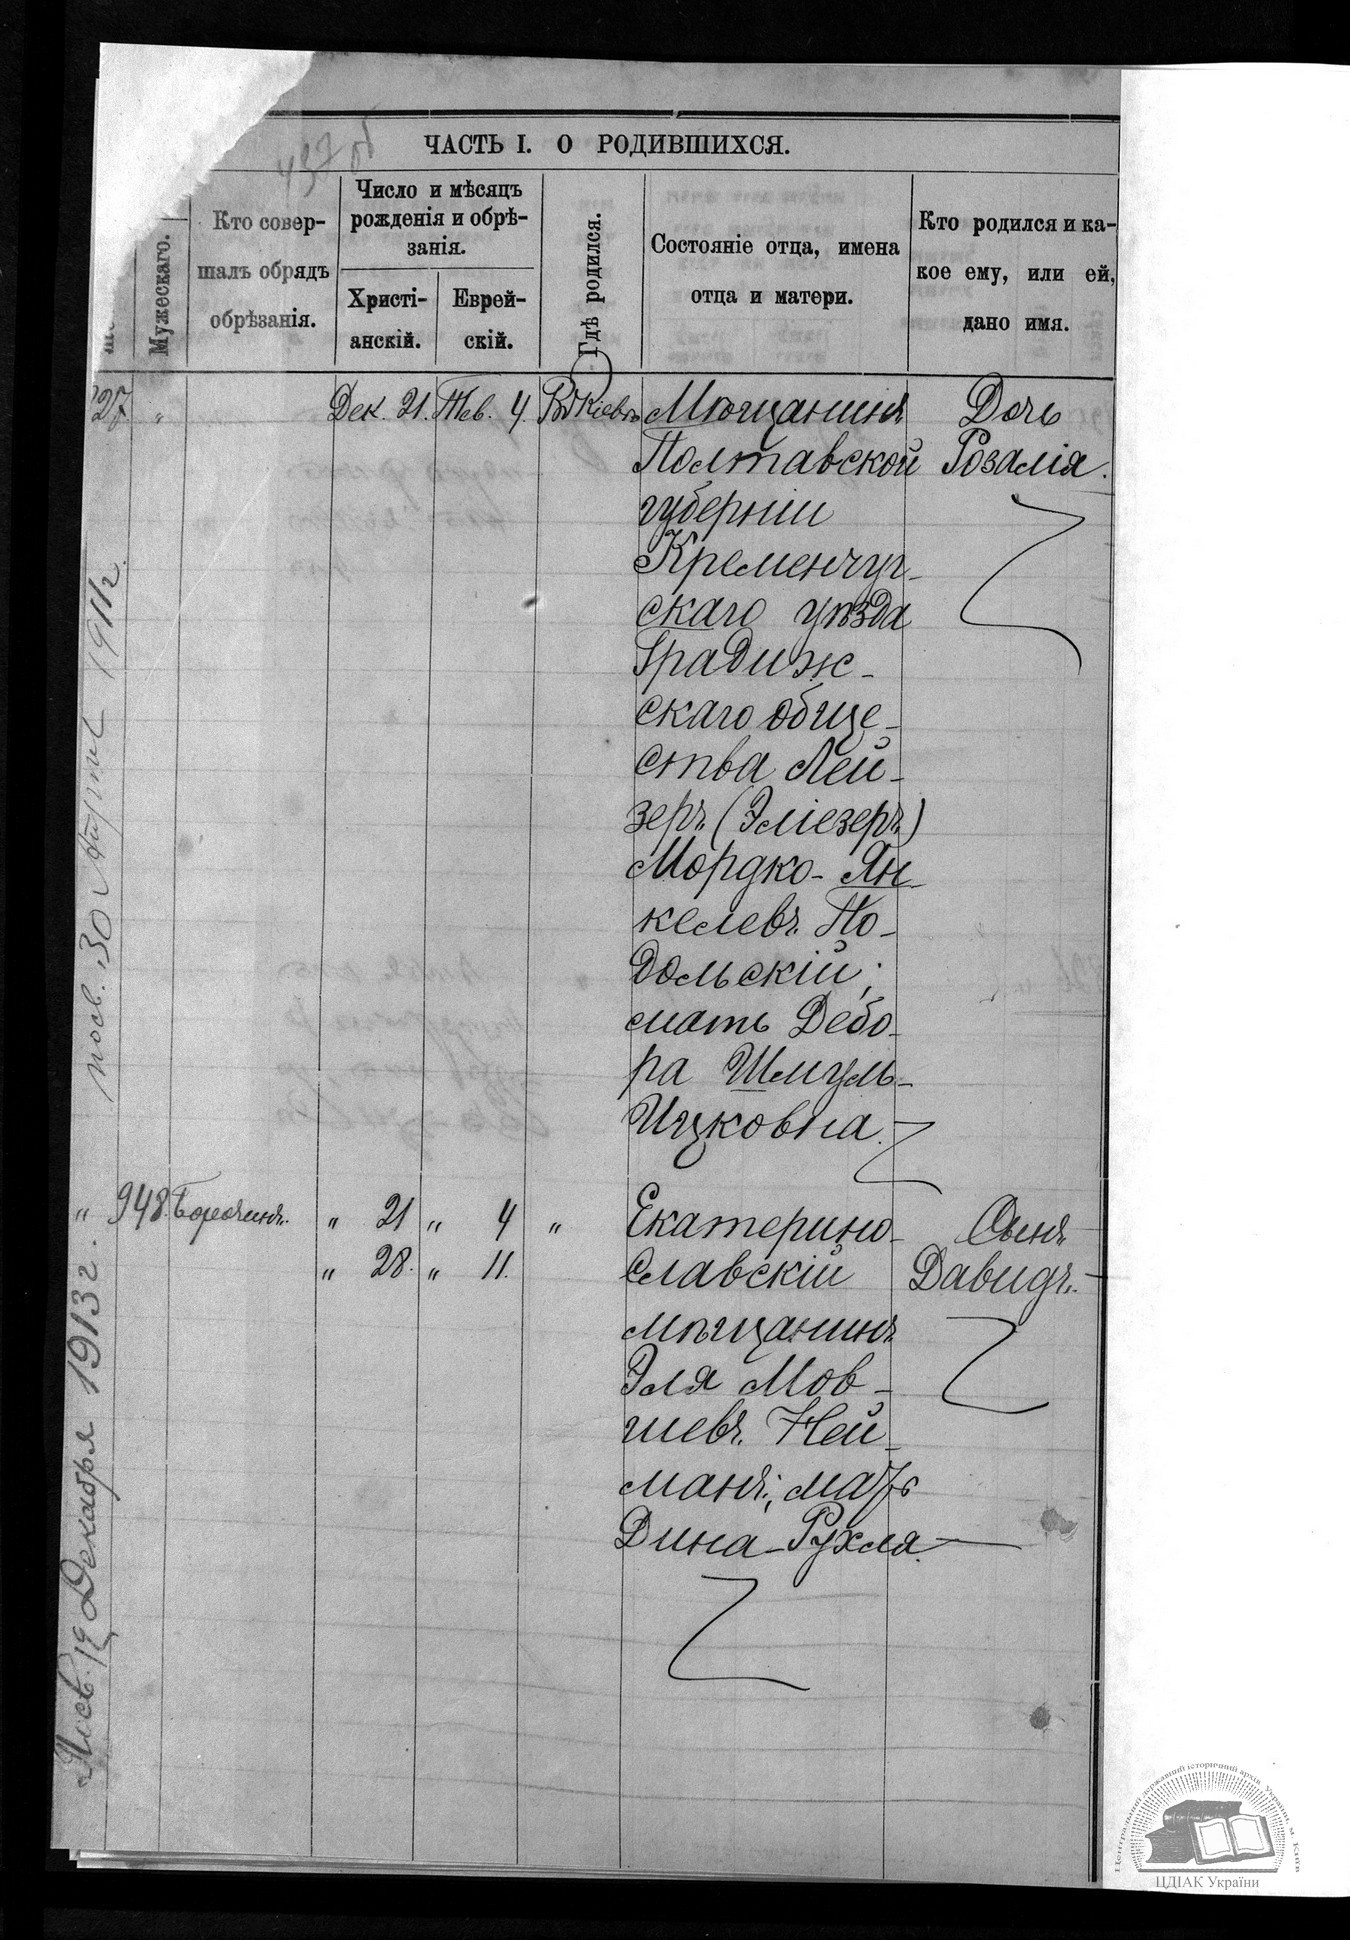 437 об
ЧАСТЬ I. О РОДИВШИХСЯ.
Мужескаго.
Кто совер-
шалъ обрядъ
обрѣзанія.
Число и мѣсяцъ
рожденія и обрѣ-
занія.
Христі-
анскій.
Еврей-
скій.
Гдѣ родился.
Состояніе отца, имена
отца и матери.
Кто родился и ка-
кое ему, или ей,
дано имя.
227. " Дек. 21. Тев. 4. Въ Кіевѣ
Мѣщанинъ
Полтавской
губерніи
Кременчуг-
скаго уѣзда
Градиж-
скаго обще-
ства Лей-
зеръ (Эліезеръ)
Мордко-Ян-
келевъ По-
дольскій;
мать Дебо-
ра Шмуль-
Ицковна.
Дочь
Розалія.
" 948. " 21 " 4 "
" 28. " 11.
Екатерино-
славскій
мѣщанинъ
Эля Мов-
шевъ Ней-
манъ; мать
Дина-Рухля
Сынъ
Давидъ.
посв. 30 Апрѣля 1911 г.
Посв. 19 Декабря 1913 г.
Центральний державний історичний архів України, м. Київ
ЦДІАК України